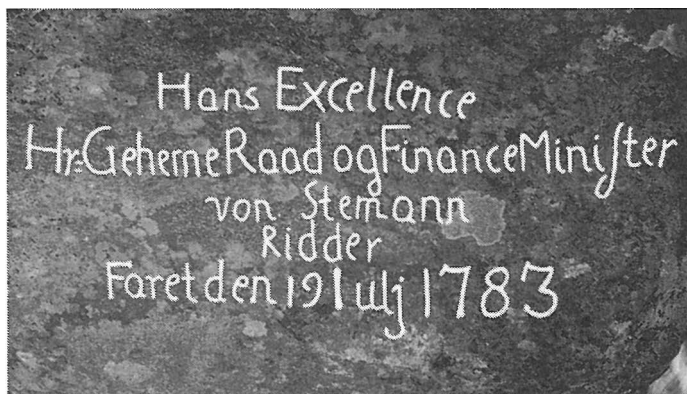 Hans Excellence
Hr: Geheme Raad og Finance Miniſter
von Stemann
Ridder
Faret den 19 Iulj 1783